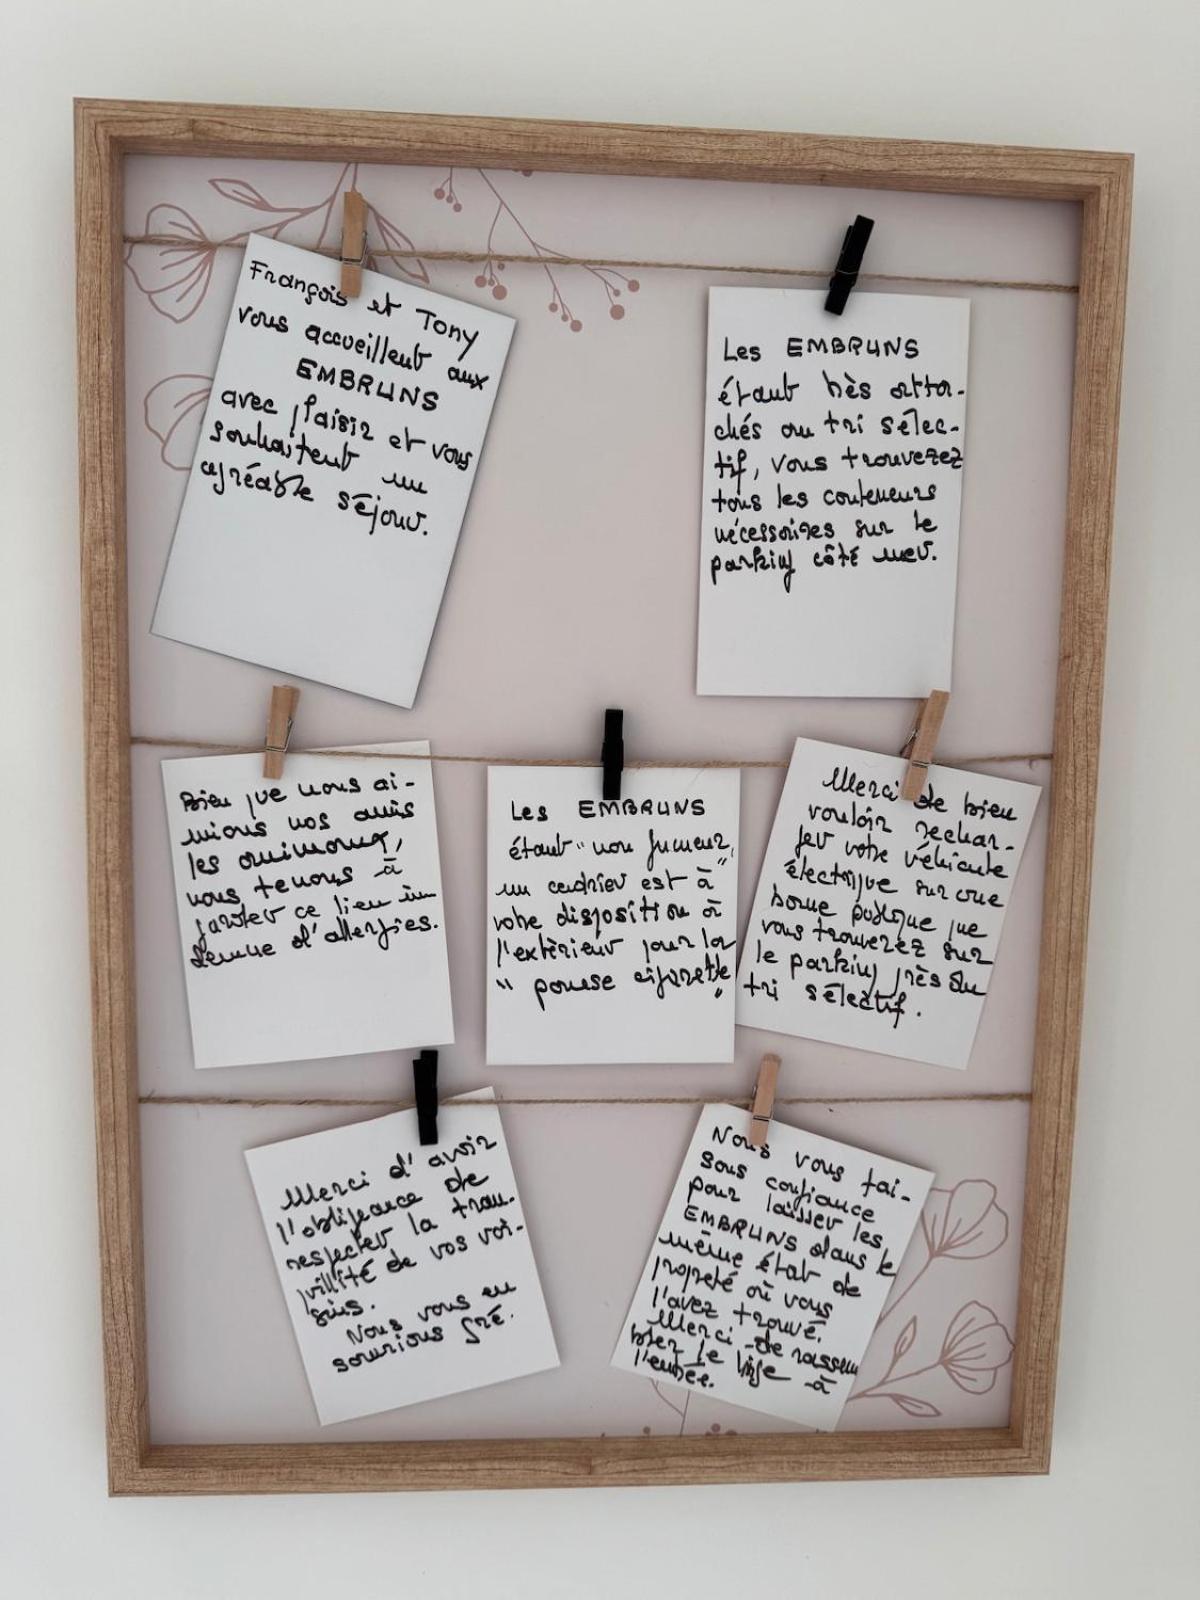 François et Tony
vous accueillent aux
EMBRUNS
avec plaisir et vous
souhaitent un
agréable séjour.
Les EMBRUNS
étant très atta-
chés au tri sélec-
tif, vous trouverez
tous les conteneurs
nécessaires sur le
parking côté mer.
Bien que nous ai-
mions nos amis
les animaux,
nous tenons à
garder ce lieu in
demne d'allergies.
Les EMBRUNS
étant "non fumeur,"
un cendrier est à
votre disposition à
l'extérieur pour la
"pause cigarette"
Merci de bien
vouloir rechar-
ger votre véhicule
électrique sur une
borne publique que
vous trouverez sur
le parking près du
tri sélectif.
Merci d'avoir
l'obligeance de
respecter la tran-
quillité de vos voi-
sins.
Nous vous en
saurions gré.
Nous vous fai-
sons confiance
pour laisser les
EMBRUNS dans le
même état de
propreté où vous
l'avez trouvé.
Merci de rassem
bler le linge à
l'entrée.